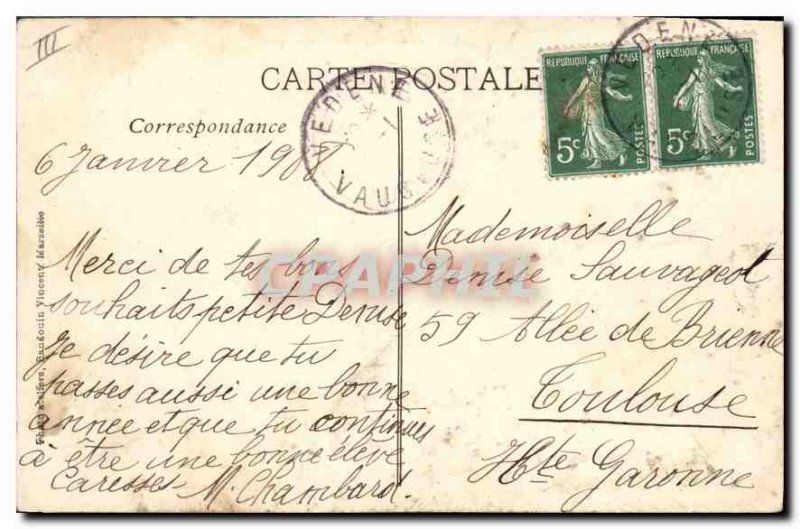 III
CARTE POSTALE
Correspondance
VEDENE
VAUCLUSE
REPUBLIQUE FRANÇAISE
5c
POSTES
REPUBLIQUE FRANÇAISE
5c
POSTES
VEDENE
6 Janvier 1908
Merci de tes bons
souhaits petite Denise
Je désire que tu
passes aussi une bonne
année et que tu continues
à être une bonne élève
Caresses M. Chambard.
Mademoiselle
Denise Sauvageot
59 Allée de Brienne
Toulouse
Hte Garonne
CPAPHIL
Baudouin Vincent, Marseille